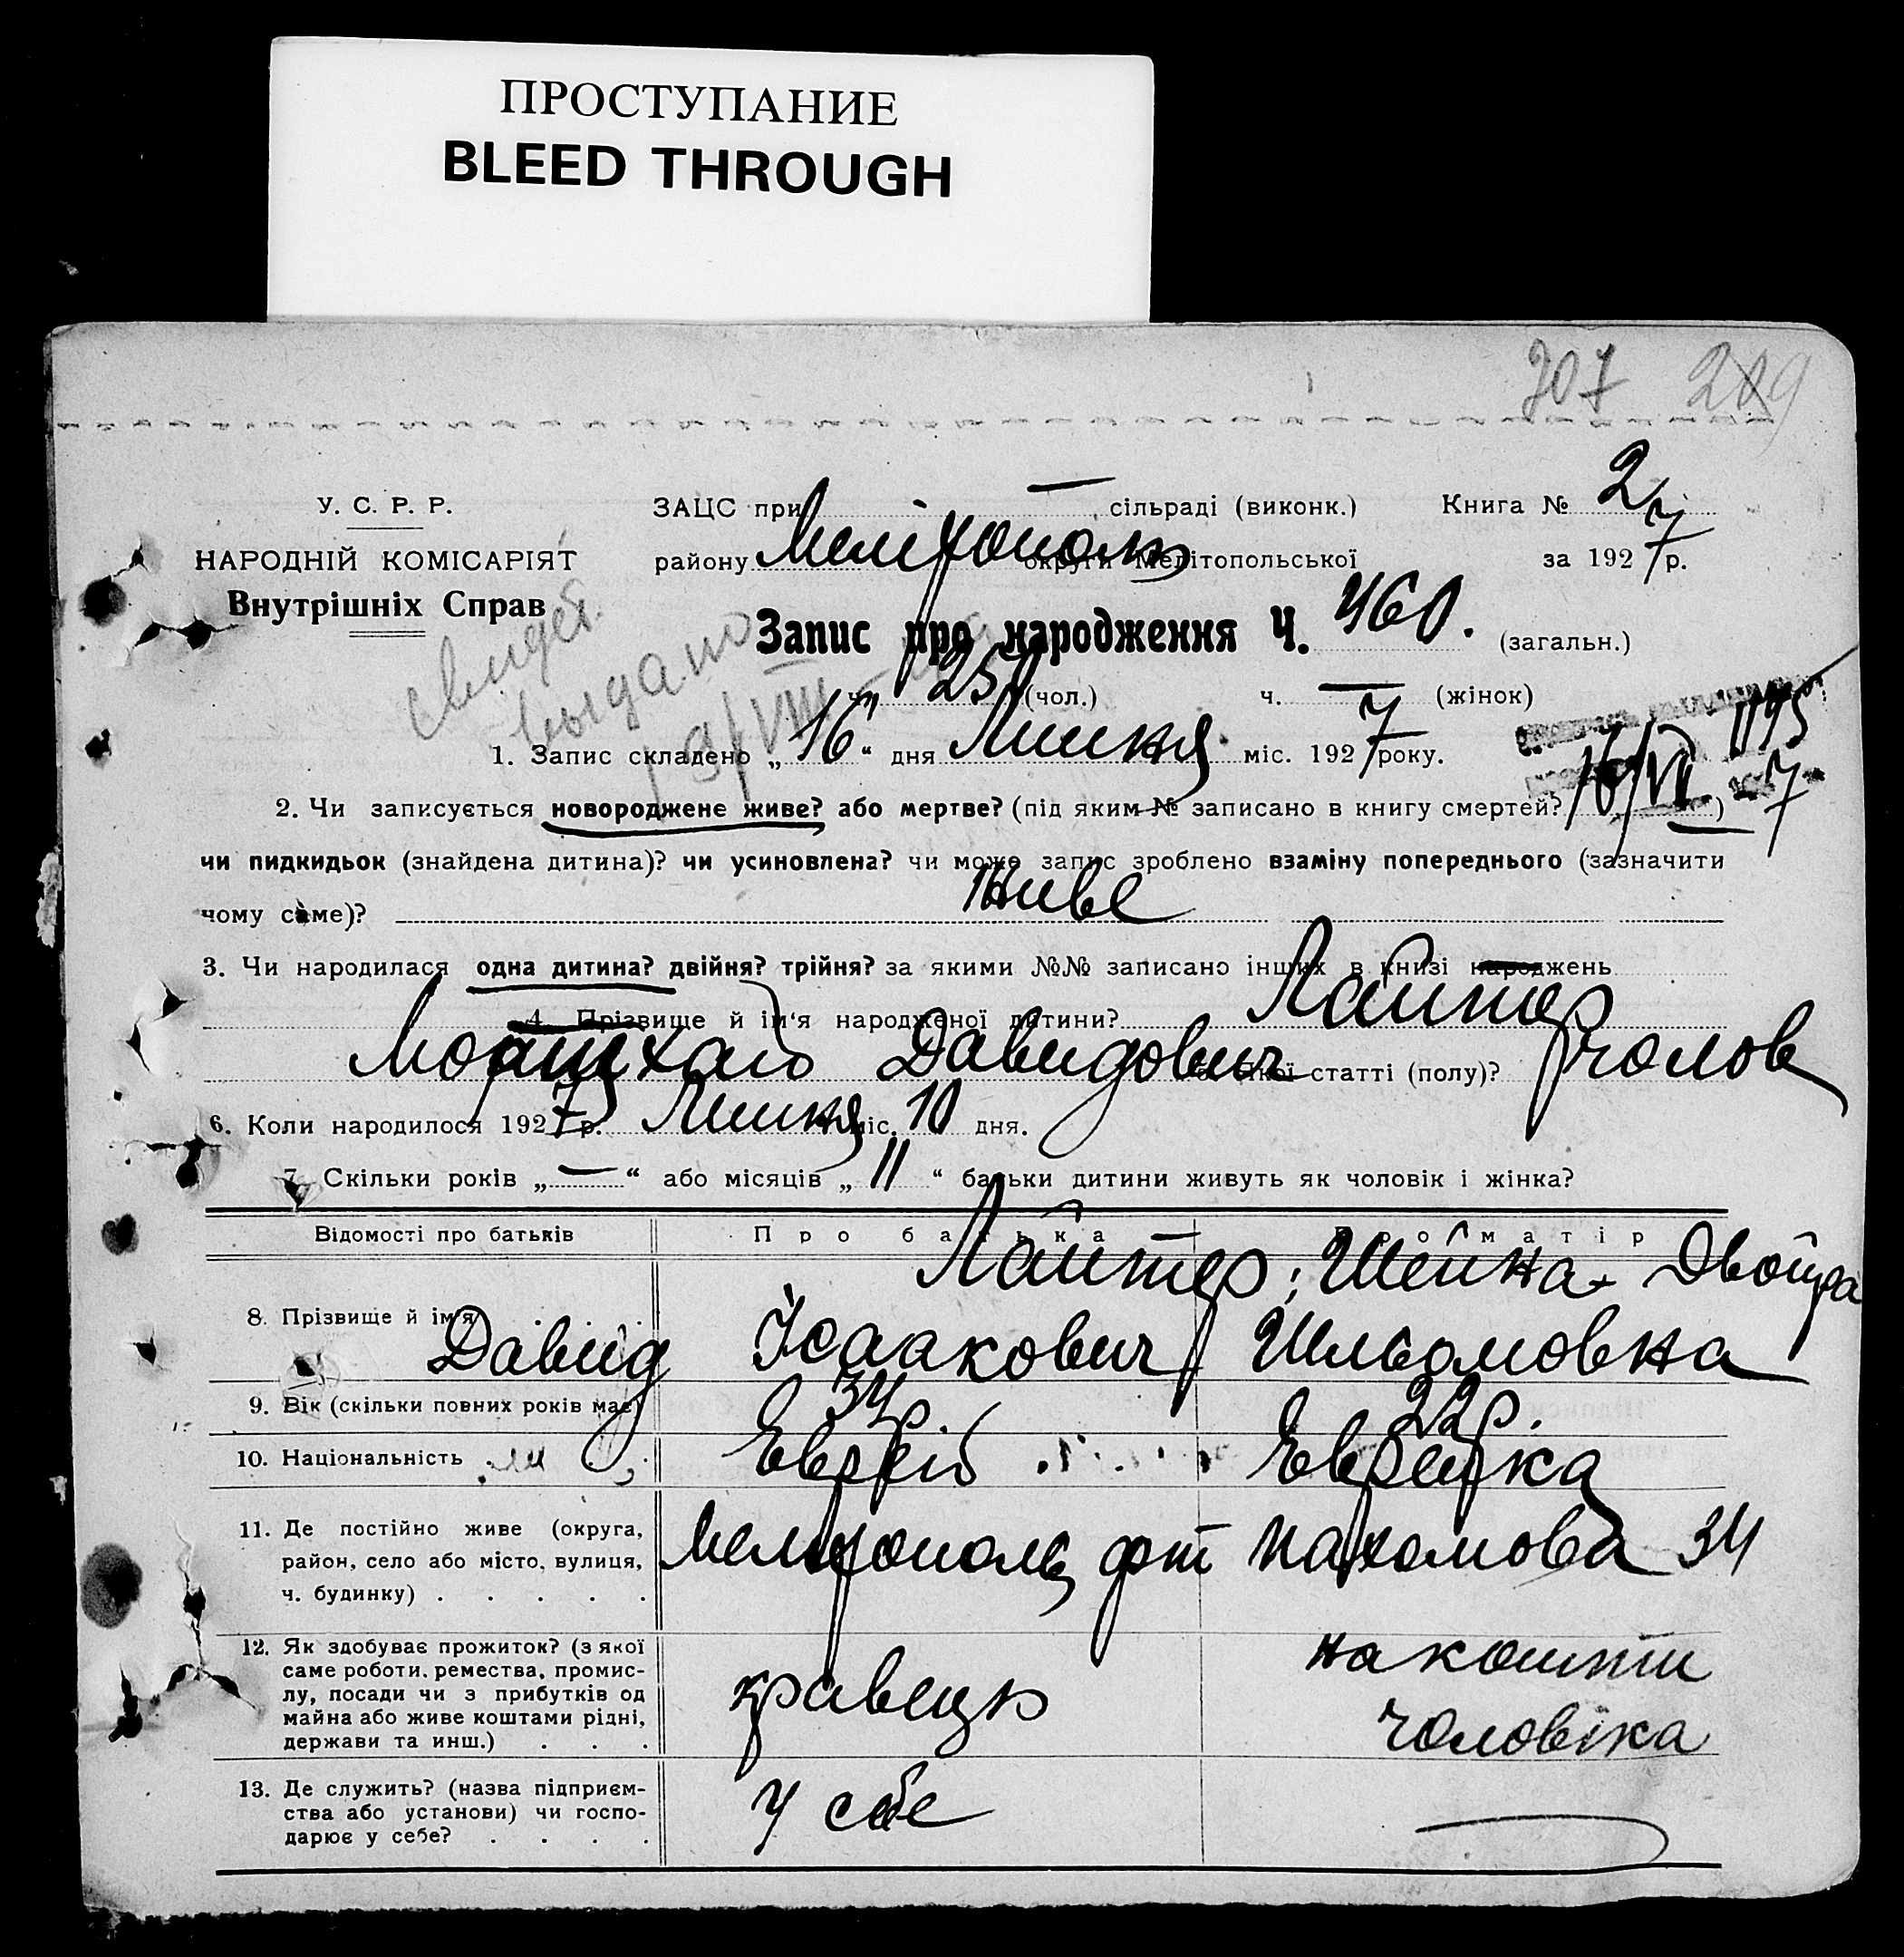 ПРОСТУПАНИЕ
BLEED THROUGH
707 209
У. С. Р. Р.
НАРОДНІЙ КОМІСАРІЯТ
Внутрішніх Справ
ЗАЦС при — сільраді (виконк.) Книга № 2
району Мелітополь округи Мелітопольської за 1927 р.
свидет.
выдано
Запис про народження Ч. 460. (загальн.)
ч. 25 (чол.) ч. — (жінок)
1. Запис складено „16“ дня Липня міс. 1927 року.
2. Чи записується новороджене живе? або мертве? (під яким № записано в книгу смертей? — )
чи пидкидьок (знайдена дитина)? чи усиновлена? чи може запис зроблено взаміну попереднього (зазначити
чому саме)? живе
3. Чи народилася одна дитина? двійня? трійня? за якими №№ записано інших в книзі народжень —
4. Прізвище й ім'я народженої дитини? Лайтер
Давидович статті (полу)? чолов
6. Коли народилося 1927 р. Липня міс. 10 дня.
7. Скільки років „—“ або місяців „11“ батьки дитини живуть як чоловік і жінка?
Відомості про батьків Про батька Про матір
Лайтер; Шейна-Двойра
8. Прізвище й ім'я Давид Ісаакович Шльомовна
9. Вік (скільки повних років має) 34 р. 22 р.
10. Національність Еврей Еврейка
11. Де постійно живе (округа,
район, село або місто, вулиця,
ч. будинку) . . . . . Мелітополь Пахомова 34
12. Як здобуває прожиток? (з якої
саме роботи, ремества, промис-
лу, посади чи з прибутків од
майна або живе коштами рідні,
держави та инш.) . . .
кравець на кошти
чоловіка
13. Де служить? (назва підприєм-
ства або установи) чи госпо-
дарює у себе? . . . . у себе —